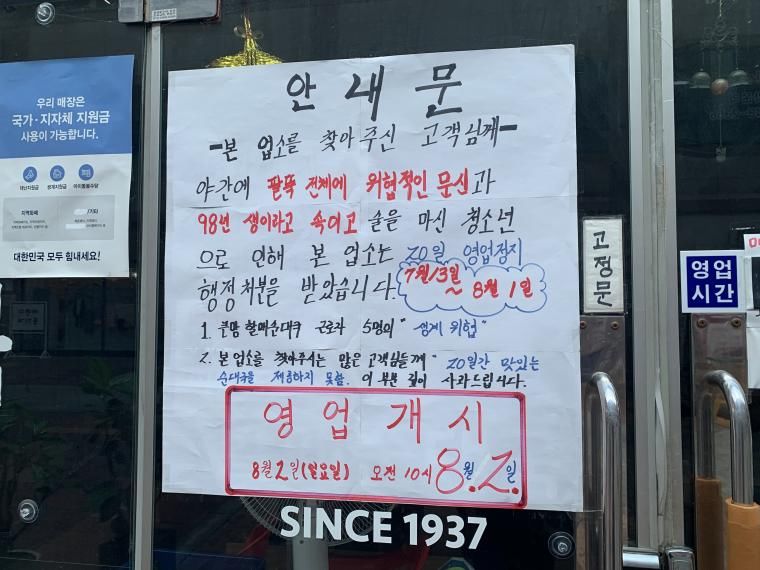 우리 매장은
국가·지자체 지원금
사용이 가능합니다.
재난지원금 생계지원금 아이돌봄수당
지역화폐
대한민국 모두 힘내세요!
안내문
-본 업소를 찾아주신 고객님께-
야간에 팔뚝 전체에 위협적인 문신과
98년 생이라고 속이고 술을 마신 청소년
으로 인해 본 업소는 20일 영업정지
행정처분을 받았습니다.
7월/3일
~ 8월 1일
1. 큰맘 할매순대국 근로자 5명의 "생계 위협"
2. 본 업소를 찾아주시는 많은 고객님들께 "20일간 맛있는
순대국을 제공하지 못함. 이 부분 깊이 사과드립니다.
영업개시
8월 2일 (일요일) 오전 10시 8월. 2.일
SINCE 1937
고정문
영업
시간